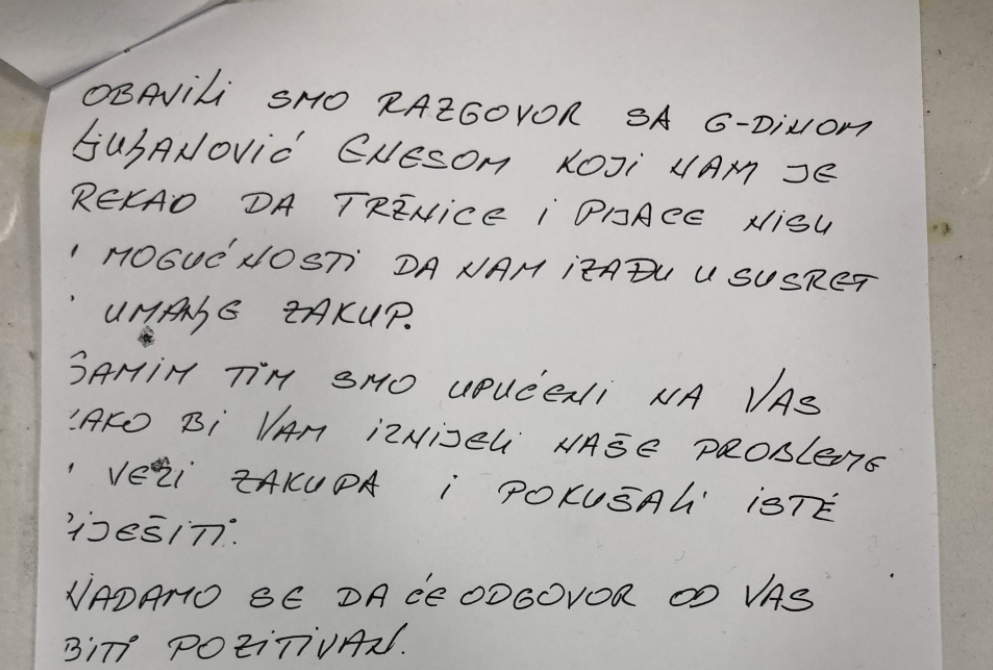 OBAVILI SMO RAZGOVOR SA G-DINOM
LJUHANOVIĆ ENESOM KOJI NAM JE
REKAO DA TRŽNICE I PIJACE NISU
MOGUĆNOSTI DA NAM IZAĐU U SUSRET
UMANJE ZAKUP.
SAMIM TIM SMO UPUĆENI NA VAS
KAKO BI VAM IZNIJELI NAŠE PROBLEME
VEZI ZAKUPA I POKUŠALI ISTE
RIJEŠITI.
NADAMO SE DA ĆE ODGOVOR OD VAS
BITI POZITIVAN.